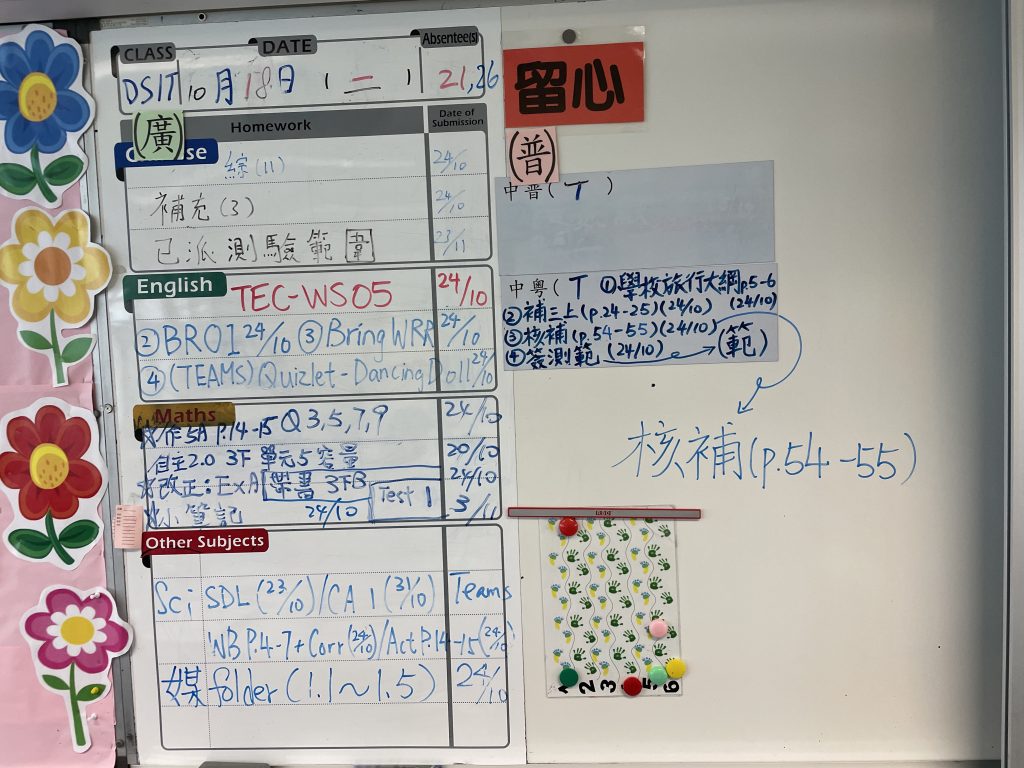 CLASS DATE Absentee(s)
DSIT 10月18日 (二) 21,26
Homework Date of Submission
(廣)
綜(11) 24/10
補充(3) 24/10
已派測驗範圍 23/11
English
TEC-WS05 24/10
②BR01 24/10 ③Bring WRR 24/10
④(TEAMS) Quizlet - Dancing Doll 24/10
Maths
作5A P.14-15 Q 3,5,7,9 24/10
自主2.0 3下 單元5 容量 20/10
改正:Ex A 24/10
3下B
小筆記 24/10 Test 1 3/11
Other Subjects
Sci SDL (23/10)/CA 1 (31/10) Teams
WB P.4-7 + Corr (24/10)/Act P.14-15 (24/10)
媒 folder (1.1~1.5) 24/10
留心
(普)
中普( T )
中粵( T ①學校旅行大網p.5-6
②補三上(p.24-25)(24/10) (24/10)
③核補(p.54-55)(24/10)
④簽測範 (24/10) (範)
核補(p.54-55)
1 2 3 5 6